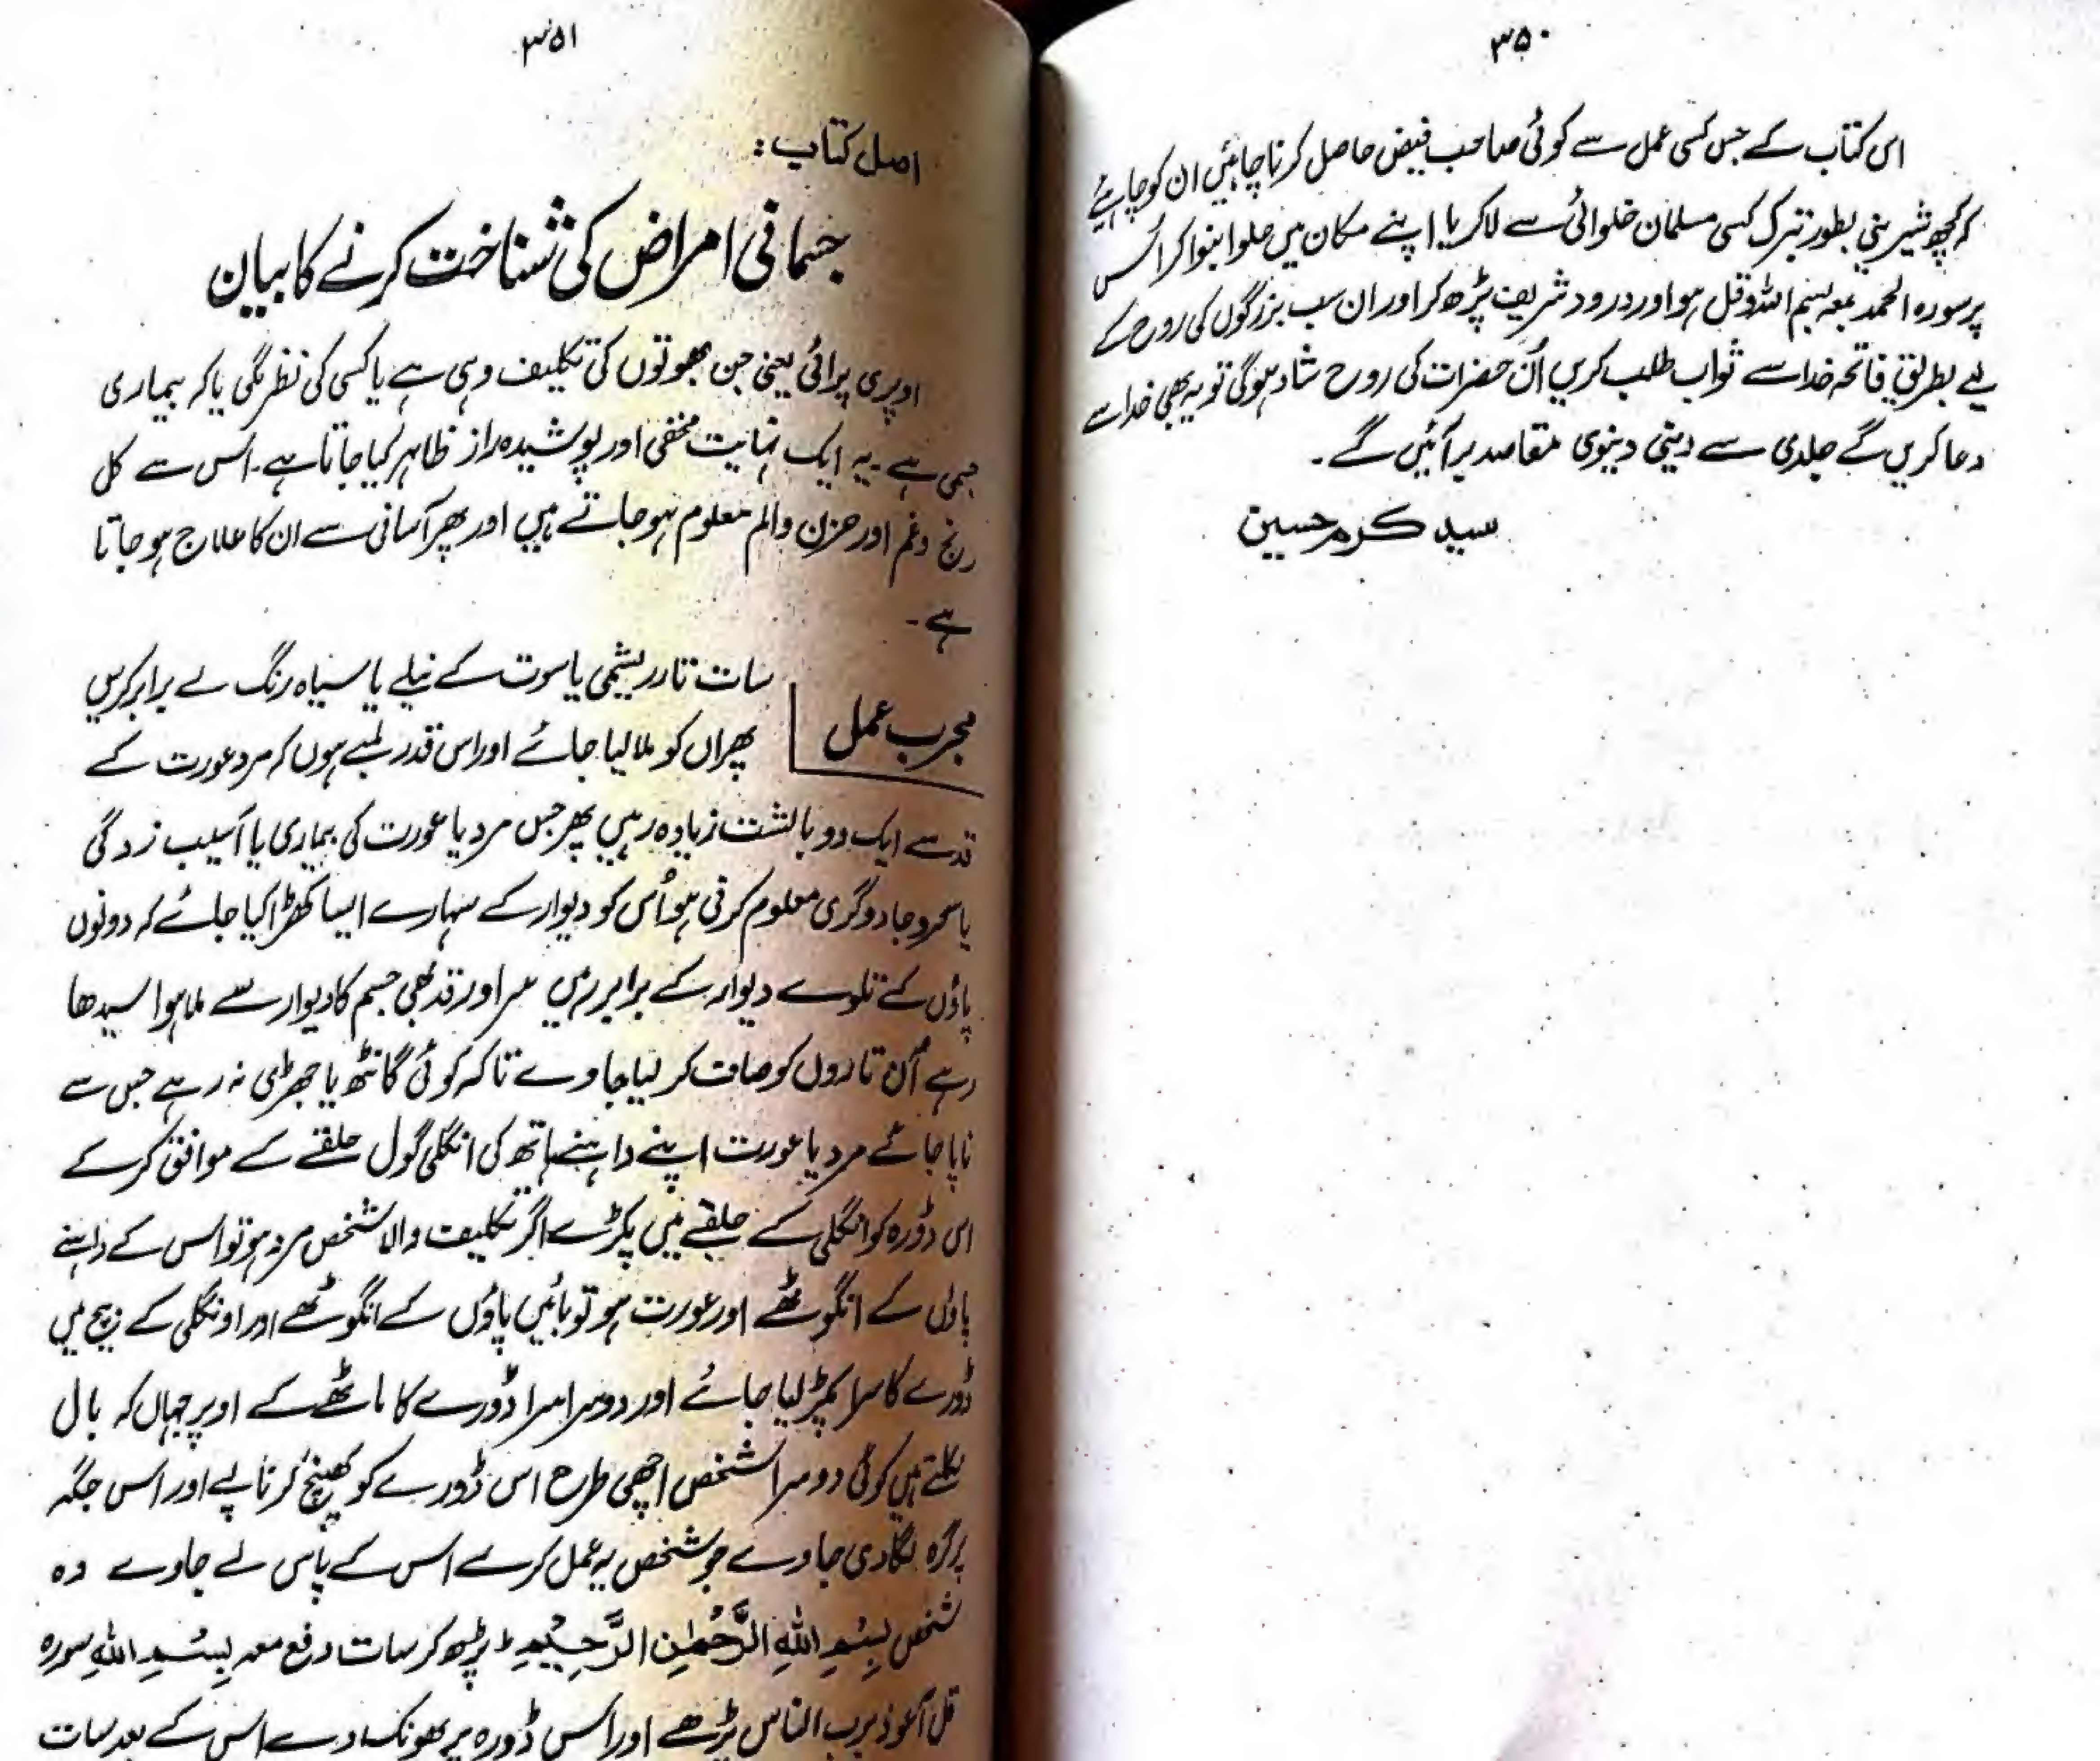 ۳۵۰
اس کتاب کے جس کسی عمل سے کوئی صاحب فیض حاصل کرنا چاہئیں ان کو چاہئے
کہ کچھ شیرینی بطور تبرک کسی مسلمان حلوائی سے لاکر یا اپنے مکان میں حلوا بنوا کر اس
پر سورہ الحمد بمعہ بسم اللہ وقل ہو اور درود شریف پڑھ کر اور ان سب بزرگوں کی روح کے
لیے بطریق فاتحہ خدا سے ثواب طلب کریں اُن حضرات کی روح شاد ہوگی تو یہ بھی خدا سے
دعا کریں گے جلدی سے دینی دینوی مقاصد بر آئیں گے۔
سید کرم حسین
۳۵۱
اصل کتاب:
جسمانی امراض کی شناخت کرنے کا بیان
اوپری پرائی یعنی جن بھوتوں کی تکلیف دہی ہے یا کسی کی نظر لگی یا کہ بیماری
جسمی ہے۔ یہ ایک نہایت مخفی اور پوشیدہ راز ظاہر کیا جاتا ہے۔ اس سے کل
رنج وغم اور حزن والم معلوم ہوجاتے ہیں اور پھر آسانی سے ان کا علاج ہو جاتا
ہے۔
مجرب عمل
سات تار ریشمی یا سوت کے نیلے یا سیاہ رنگ لے برابر کریں
پھر ان کو ملا لیا جائے اور اس قدر لمبے ہوں کہ مرد عورت کے
قد سے ایک دو بالشت زیادہ رہیں پھر جس مرد یا عورت کی بیماری یا آسیب زدگی
یا سحر و جادوگری معلوم کرنی ہو اُس کو دیوار کے سہارے ایسا کھڑا کیا جائے کہ دونوں
پاؤں کے تلوے دیوار کے برابر رہیں سر اور قد بھی جسم کا دیوار سے ملا ہوا سیدھا
رہے اُن تاروں کو صاف کر لیا جاوے تاکہ کوئی گانٹھ یا جھڑی نہ رہے جس سے
ناپا جائے مرد یا عورت اپنے داہنے ہاتھ کی انگلی گول حلقے کے موافق کرکے
اس ڈورہ کو انگلی کے حلقے میں پکڑے اگر تکلیف والا شخص مرد ہو تو اس کے داہنے
پاؤں کے انگوٹھے اور عورت ہو تو بائیں پاؤں کے انگوٹھے اور اونگلی کے بیچ میں
ڈورے کا سرا پکڑ لیا جائے اور دوسرا سرا ڈورے کا ماتھے کے اوپر جہاں کہ بال
نکلتے ہیں کوئی دوسرا شخص اچھی طرح اس ڈورے کو کھینچ کر ناپے اور اس جگہ
پر گرہ لگا دی جاوے جو شخص یہ عمل کرے اس کے پاس لے جاوے وہ
شخص بِسْمِ اللّٰهِ الرَّحْمٰنِ الرَّحِيْمِ پڑھ کر سات دفع معہ بِسْمِ اللّٰهِ سورہ
قل اعوذ برب الناس پڑھے اور اس ڈورہ پر پھونک دے اس کے بعد سات